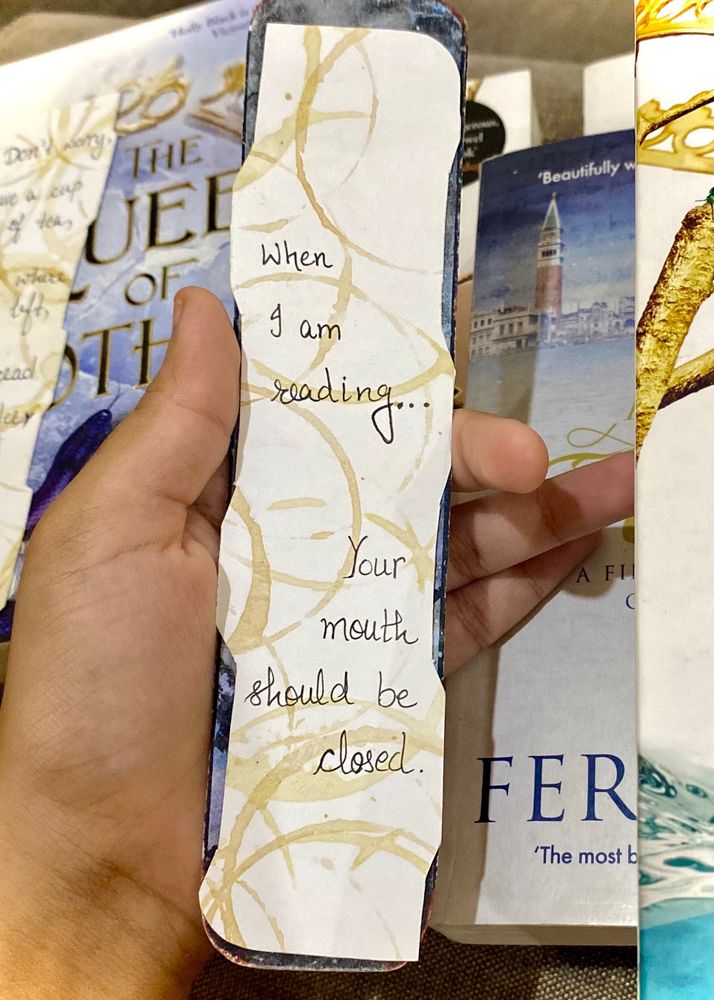 Don't worry,
a cup
of tea,
where
left,
read
THE
QUEE
OF
OTH
When
I am
reading...
Your
mouth
should be
closed.
'Beautifully w
A FI
FER
'The most b